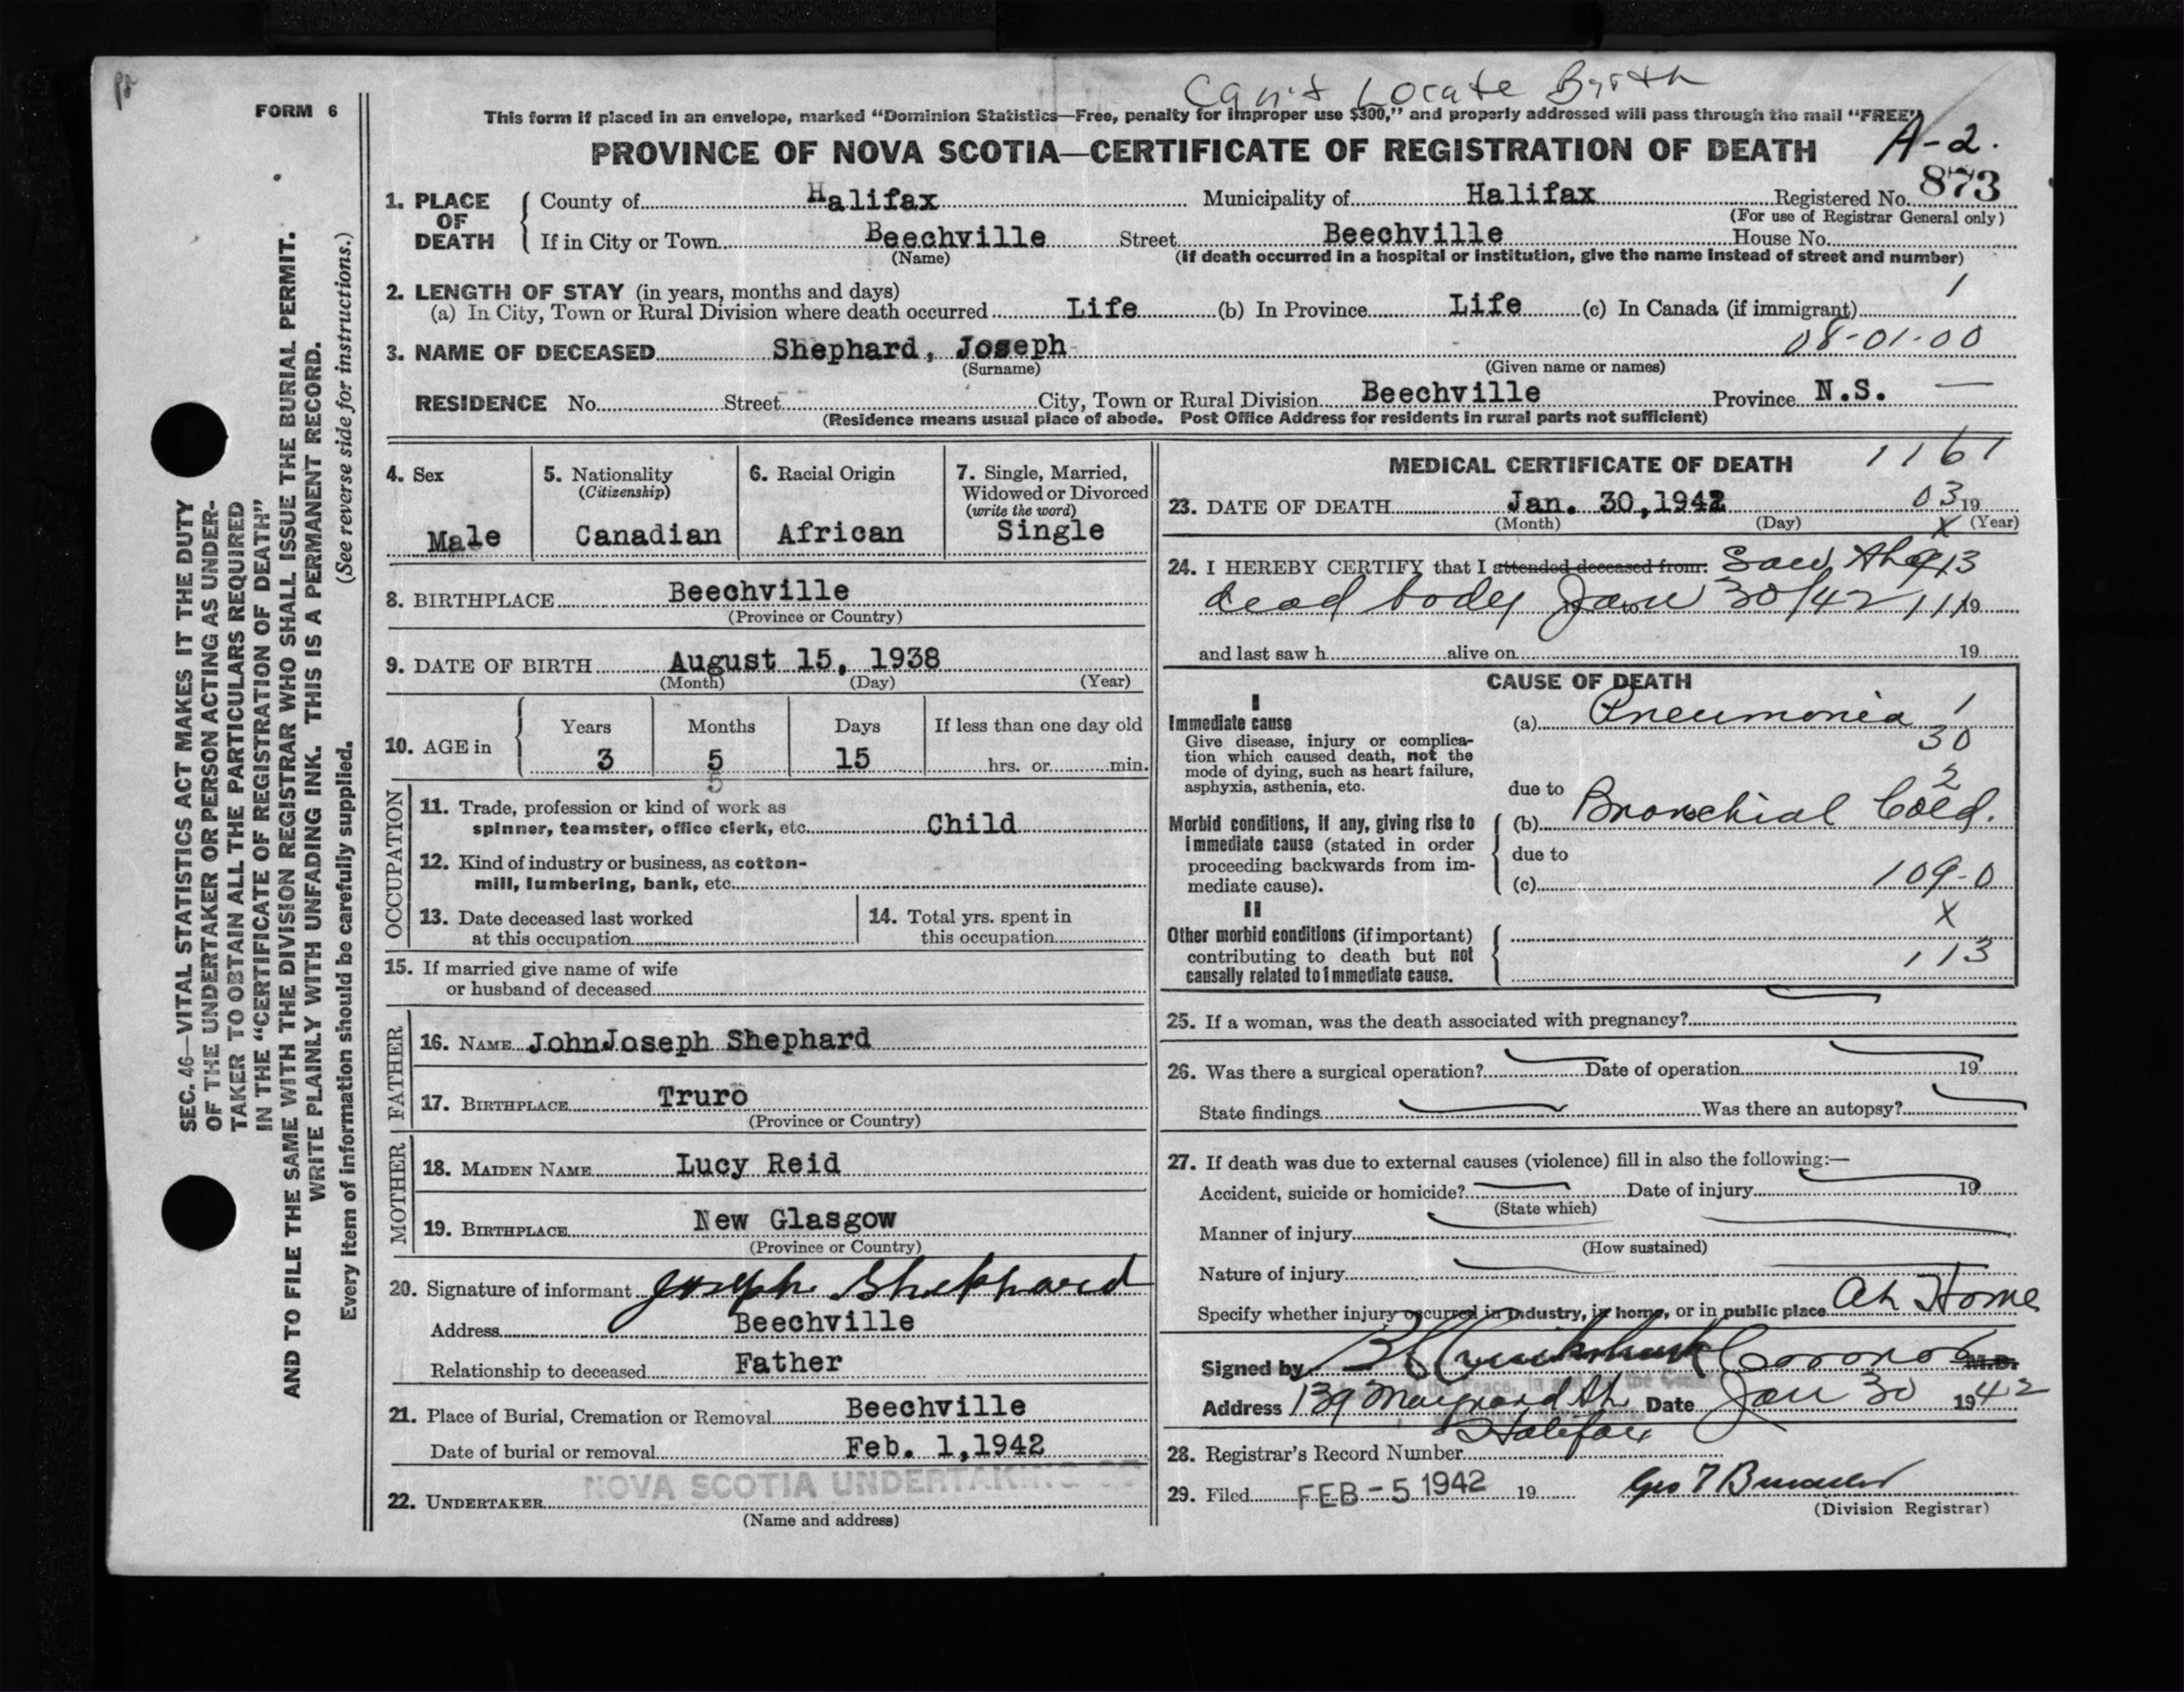 Can't Locate Birth
FORM 6
This form if placed in an envelope, marked "Dominion Statistics—Free, penalty for improper use $300," and properly addressed will pass through the mail "FREE"
PROVINCE OF NOVA SCOTIA—CERTIFICATE OF REGISTRATION OF DEATH A-2.
873
1. PLACE OF DEATH
County of Halifax Municipality of Halifax Registered No.
(For use of Registrar General only)
If in City or Town Beechville Street Beechville House No.
(Name) (If death occurred in a hospital or institution, give the name instead of street and number)
2. LENGTH OF STAY (in years, months and days) 1
(a) In City, Town or Rural Division where death occurred Life (b) In Province Life (c) In Canada (if immigrant)
3. NAME OF DECEASED Shephard, Joseph 08-01-00
(Surname) (Given name or names)
RESIDENCE No. Street City, Town or Rural Division Beechville Province N.S. —
(Residence means usual place of abode. Post Office Address for residents in rural parts not sufficient)
4. Sex
Male
5. Nationality
(Citizenship)
Canadian
6. Racial Origin
African
7. Single, Married,
Widowed or Divorced
(write the word)
Single
8. BIRTHPLACE Beechville
(Province or Country)
9. DATE OF BIRTH August 15, 1938
(Month) (Day) (Year)
10. AGE in
Years Months Days If less than one day old
3 5 15 hrs. or min.
5
OCCUPATION
11. Trade, profession or kind of work as
spinner, teamster, office clerk, etc. Child
12. Kind of industry or business, as cotton-
mill, lumbering, bank, etc.
13. Date deceased last worked
at this occupation
14. Total yrs. spent in
this occupation
15. If married give name of wife
or husband of deceased
FATHER
16. NAME JohnJoseph Shephard
17. BIRTHPLACE Truro
(Province or Country)
MOTHER
18. MAIDEN NAME Lucy Reid
19. BIRTHPLACE New Glasgow
(Province or Country)
20. Signature of informant Joseph Shephard
Address Beechville
Relationship to deceased Father
21. Place of Burial, Cremation or Removal Beechville
Date of burial or removal Feb. 1,1942
NOVA SCOTIA UNDERTAKING CO
22. UNDERTAKER
(Name and address)
MEDICAL CERTIFICATE OF DEATH 1161
23. DATE OF DEATH Jan. 30,1942 03 19
(Month) (Day) X (Year)
24. I HEREBY CERTIFY that I attended deceased from: Saw the
dead body Jan 30/42 to 19
and last saw h alive on 19
CAUSE OF DEATH
I
Immediate cause
Give disease, injury or complica-
tion which caused death, not the
mode of dying, such as heart failure,
asphyxia, asthenia, etc.
(a) Pneumonia 1
30
2
due to
Morbid conditions, if any, giving rise to
immediate cause (stated in order
proceeding backwards from im-
mediate cause).
(b) Bronchial Cold.
due to
(c) 109-0
X
II
Other morbid conditions (if important)
contributing to death but not
causally related to immediate cause.
113
25. If a woman, was the death associated with pregnancy?
26. Was there a surgical operation? Date of operation 19
State findings Was there an autopsy?
27. If death was due to external causes (violence) fill in also the following:—
Accident, suicide or homicide? Date of injury 19
(State which)
Manner of injury
(How sustained)
Nature of injury
Specify whether injury occurred in industry, in home, or in public place At Home
Signed by Coroner M.D.
Address 139 Maynard St. Date Jan 30 1942
Halifax
28. Registrar's Record Number
29. Filed FEB-5 1942 19
(Division Registrar)
SEC. 46—VITAL STATISTICS ACT MAKES IT THE DUTY
OF THE UNDERTAKER OR PERSON ACTING AS UNDER-
TAKER TO OBTAIN ALL THE PARTICULARS REQUIRED
IN THE "CERTIFICATE OF REGISTRATION OF DEATH"
AND TO FILE THE SAME WITH THE DIVISION REGISTRAR WHO SHALL ISSUE THE BURIAL PERMIT.
WRITE PLAINLY WITH UNFADING INK. THIS IS A PERMANENT RECORD.
Every item of information should be carefully supplied. (See reverse side for instructions.)